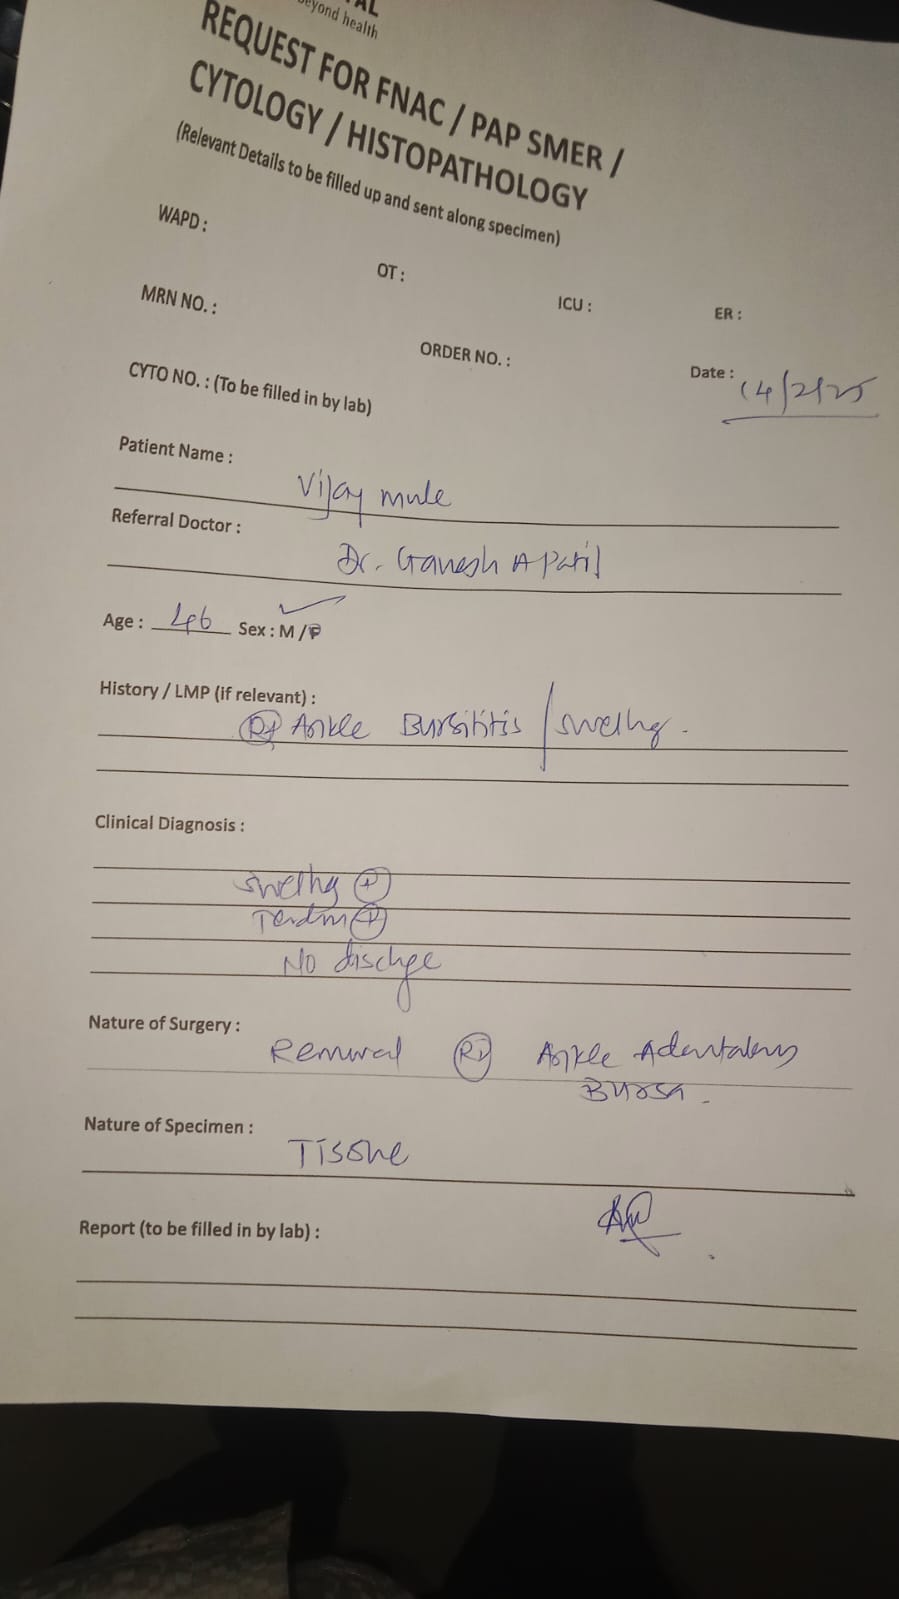 beyond health
REQUEST FOR FNAC / PAP SMER /
CYTOLOGY / HISTOPATHOLOGY
(Relevant Details to be filled up and sent along specimen)
WAPD :
OT :
ICU :
ER :
MRN NO. :
ORDER NO. :
Date : 14/2/25
CYTO NO. : (To be filled in by lab)
Patient Name :
Vijay mule
Referral Doctor :
Dr. Ganesh A Patil
Age : 46 Sex : M /F
History / LMP (if relevant) :
Rt Ankle Bursititis / swelling.
Clinical Diagnosis :
swelling +
+
No dischge
Nature of Surgery :
Removal Rt Ankle
Bursa.
Nature of Specimen :
Tissue
Report (to be filled in by lab) :